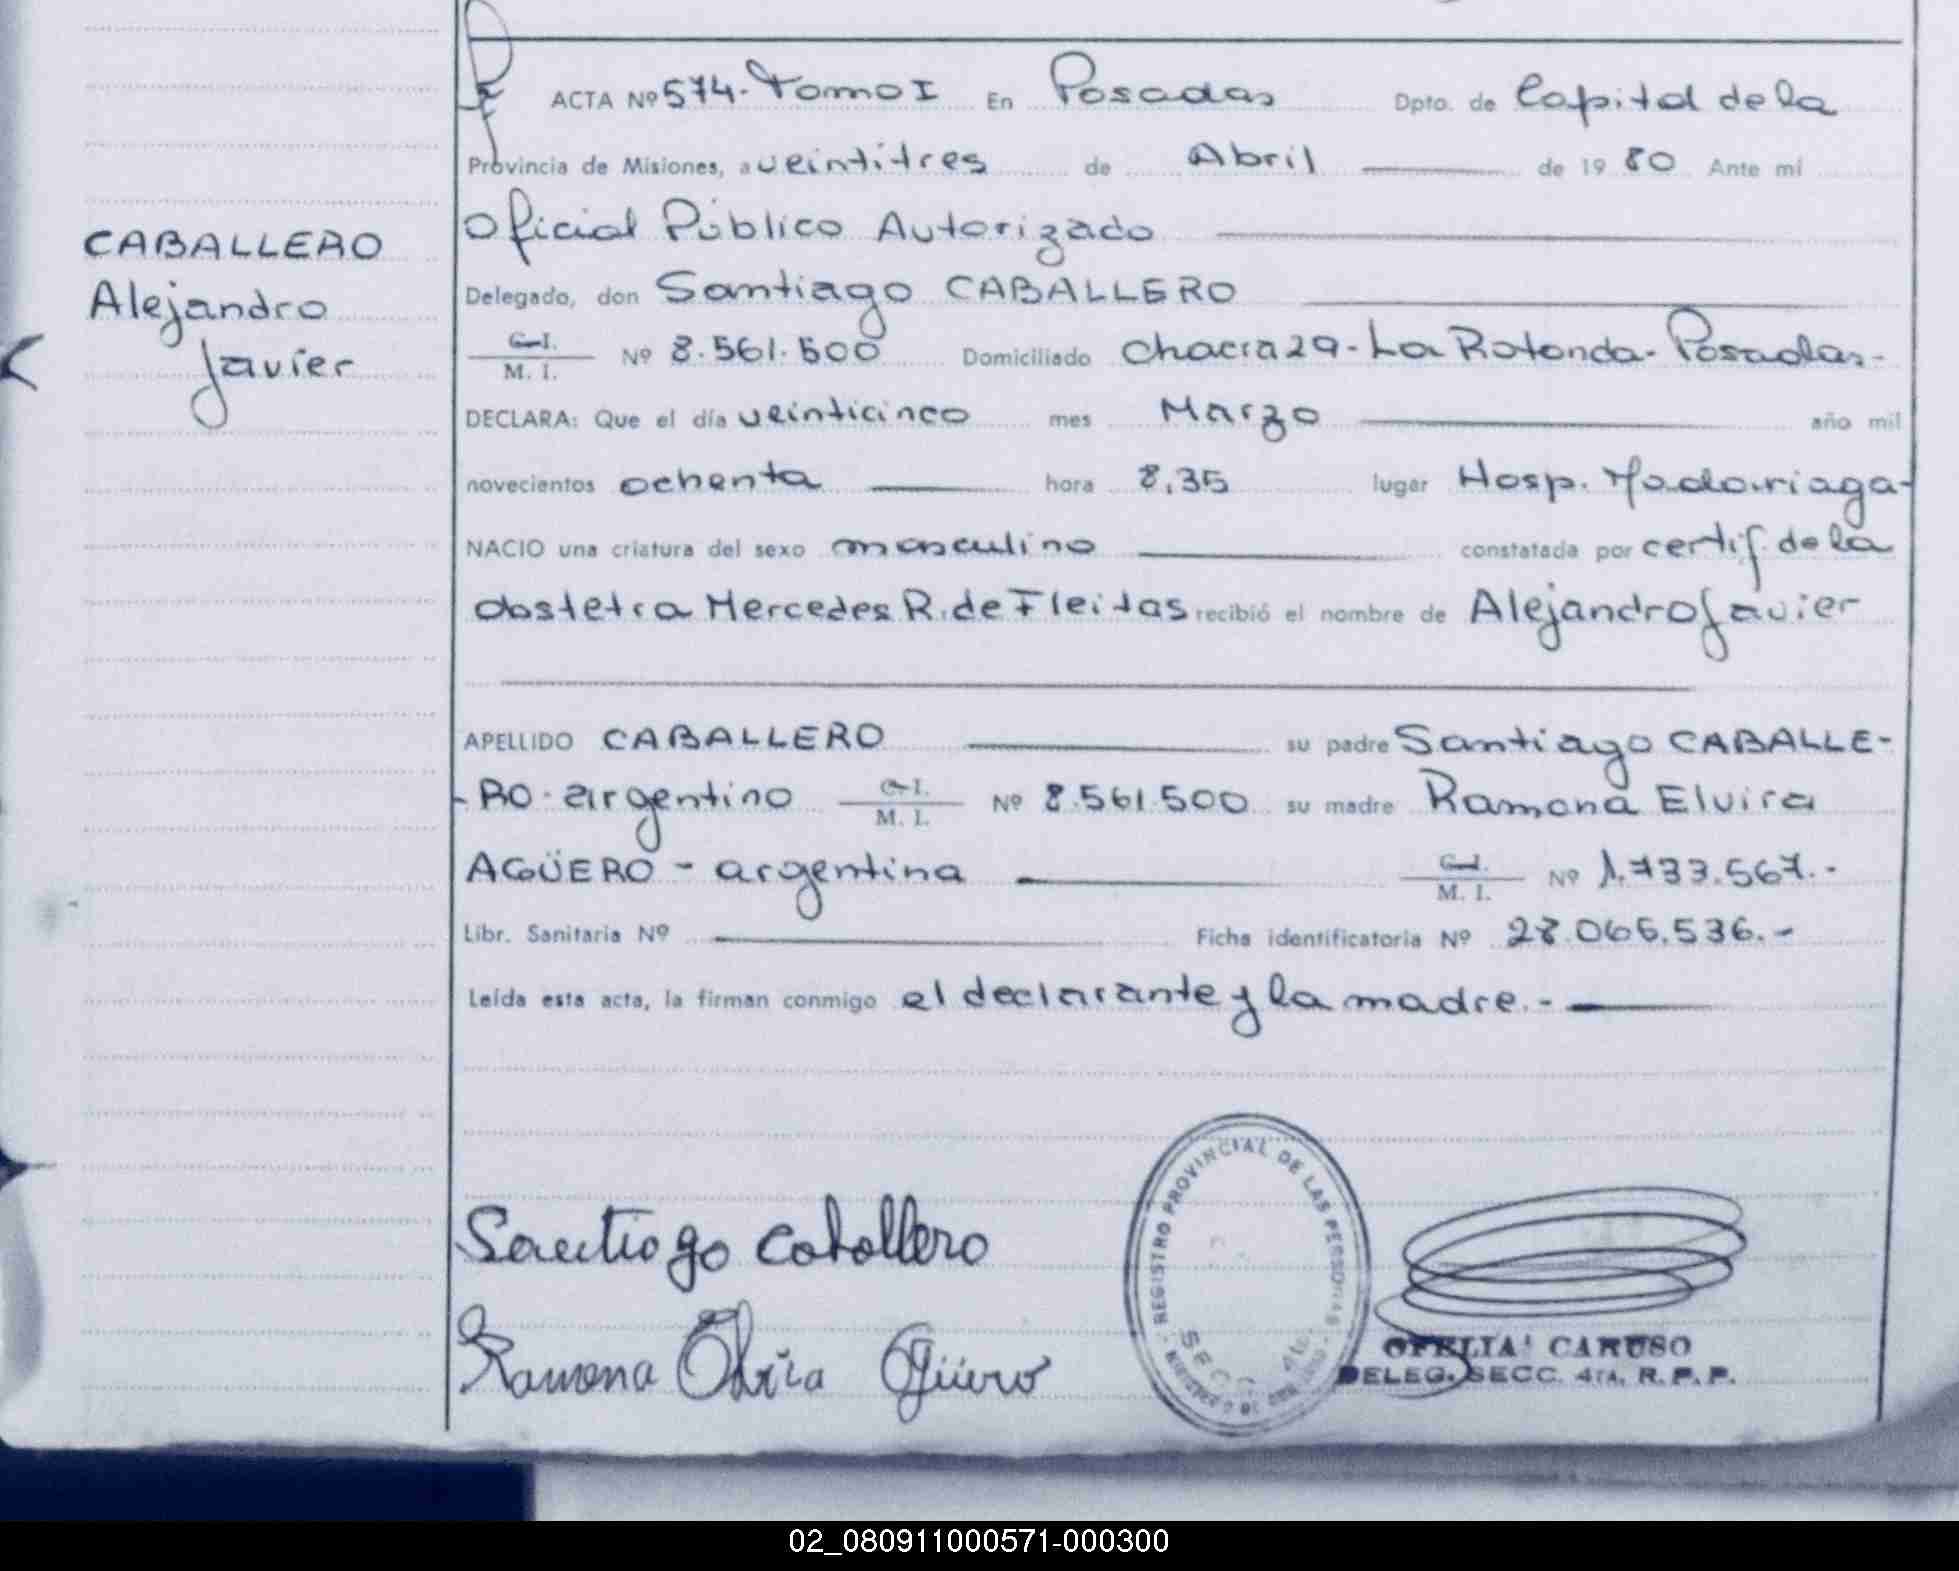 ACTA Nº 574. Tomo I En Posadas Dpto. de Capital de la
Provincia de Misiones, a veintitres de Abril de 1980 Ante mí
Oficial Público Autorizado
CABALLERO
Delegado, don Santiago CABALLERO
Alejandro
C. I.
M. I. Nº 8.561.500 Domiciliado Chacra 29 - La Rotonda - Posadas -
Javier
DECLARA: Que el día veinticinco mes Marzo año mil
novecientos ochenta hora 8,35 lugar Hosp. Madariaga -
NACIO una criatura del sexo masculino constatada por certif. de la
obstetra Mercedes R. de Fleitas recibió el nombre de Alejandro Javier
APELLIDO CABALLERO su padre Santiago CABALLE-
-RO - argentino C. I. M. I. Nº 8.561.500 su madre Ramona Elvira
AGÜERO - argentina C. I. M. I. Nº 1.733.567.-
Libr. Sanitaria Nº Ficha identificatoria Nº 28.066.536.-
Leída esta acta, la firman conmigo el declarante y la madre.-
REGISTRO PROVINCIAL DE LAS PERSONAS
SECC. 4ta.
Santiago Caballero
Ramona Elvira Agüero
OFELIA CARUSO
DELEG. SECC. 4TA. R. P. P.
02_080911000571-000300